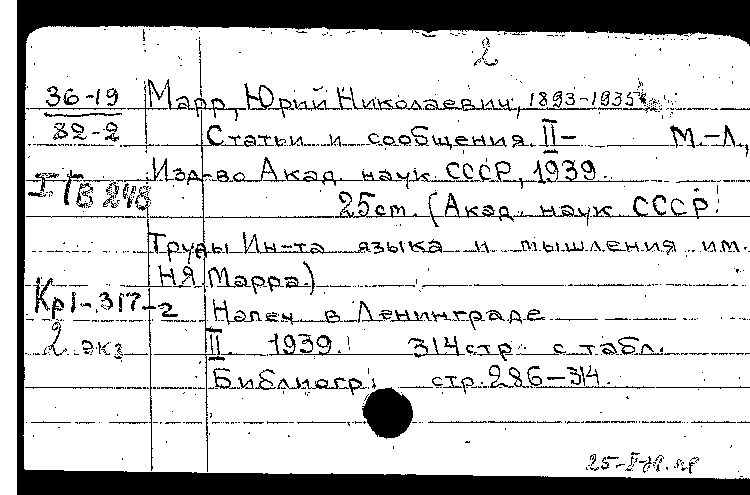 2
36-19 Марр, Юрий Николаевич, 1893-1935
32-2 Статьи и сообщения. II- М.-Л.,
Изд-во Акад. наук СССР, 1939.
25см. (Акад. наук СССР.
Труды Ин-та языка и мышления им.
НЯ Марра.)
Кр1-317-2 Напеч в Ленинграде
2 экз II. 1939. 314стр. с табл.
Библиогр: стр.286-314.